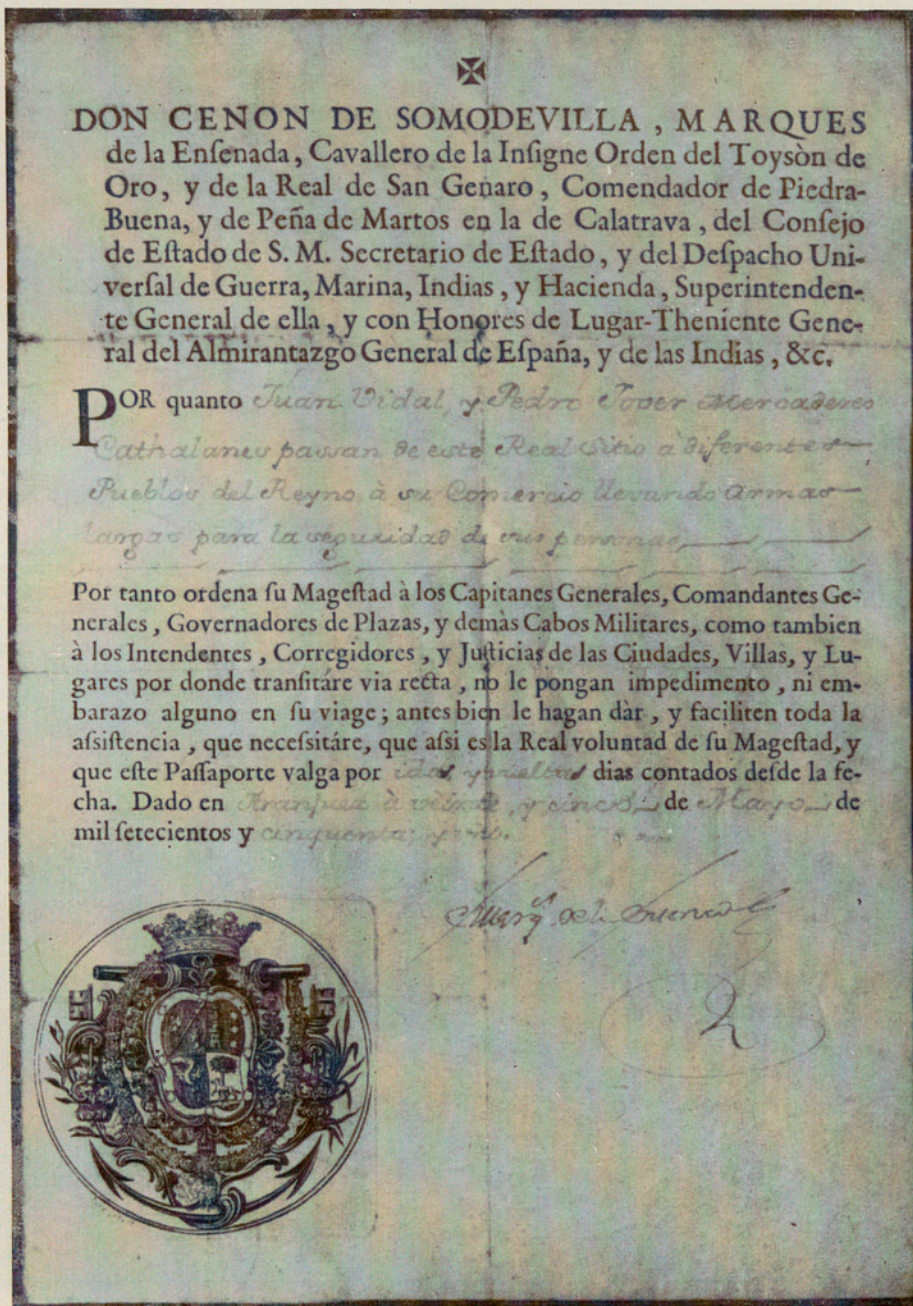 ✠
DON CENON DE SOMODEVILLA, MARQUES
de la Enſenada, Cavallero de la Inſigne Orden del Toysòn de
Oro, y de la Real de San Genaro, Comendador de Piedra-
Buena, y de Peña de Martos en la de Calatrava, del Conſejo
de Eſtado de S. M. Secretario de Eſtado, y del Deſpacho Uni-
verſal de Guerra, Marina, Indias, y Hacienda, Superintenden-
te General de ella, y con Honores de Lugar-Theniente Gene-
ral del Almirantazgo General de Eſpaña, y de las Indias, &c.
POR quanto Juan Vidal, y Pedro Tover Mercaderes
Cathalanes passan de este Real Sitio à diferentes
Pueblos del Reyno à su Comercio llevando armas
largas para la seguridad de sus personas,
Por tanto ordena ſu Mageſtad à los Capitanes Generales, Comandantes Ge-
nerales, Governadores de Plazas, y demàs Cabos Militares, como tambien
à los Intendentes, Corregidores, y Juſticias de las Ciudades, Villas, y Lu-
gares por donde tranſitáre via recta, no le pongan impedimento, ni em-
barazo alguno en ſu viage; antes bien le hagan dàr, y faciliten toda la
aſsiſtencia, que neceſsitáre, que aſsi es la Real voluntad de ſu Mageſtad, y
que eſte Paſſaporte valga por idas y vueltas dias contados deſde la fe-
cha. Dado en Aranjuez à veinte, y cinco de Mayo de
mil ſetecientos y cinquenta, y uno.